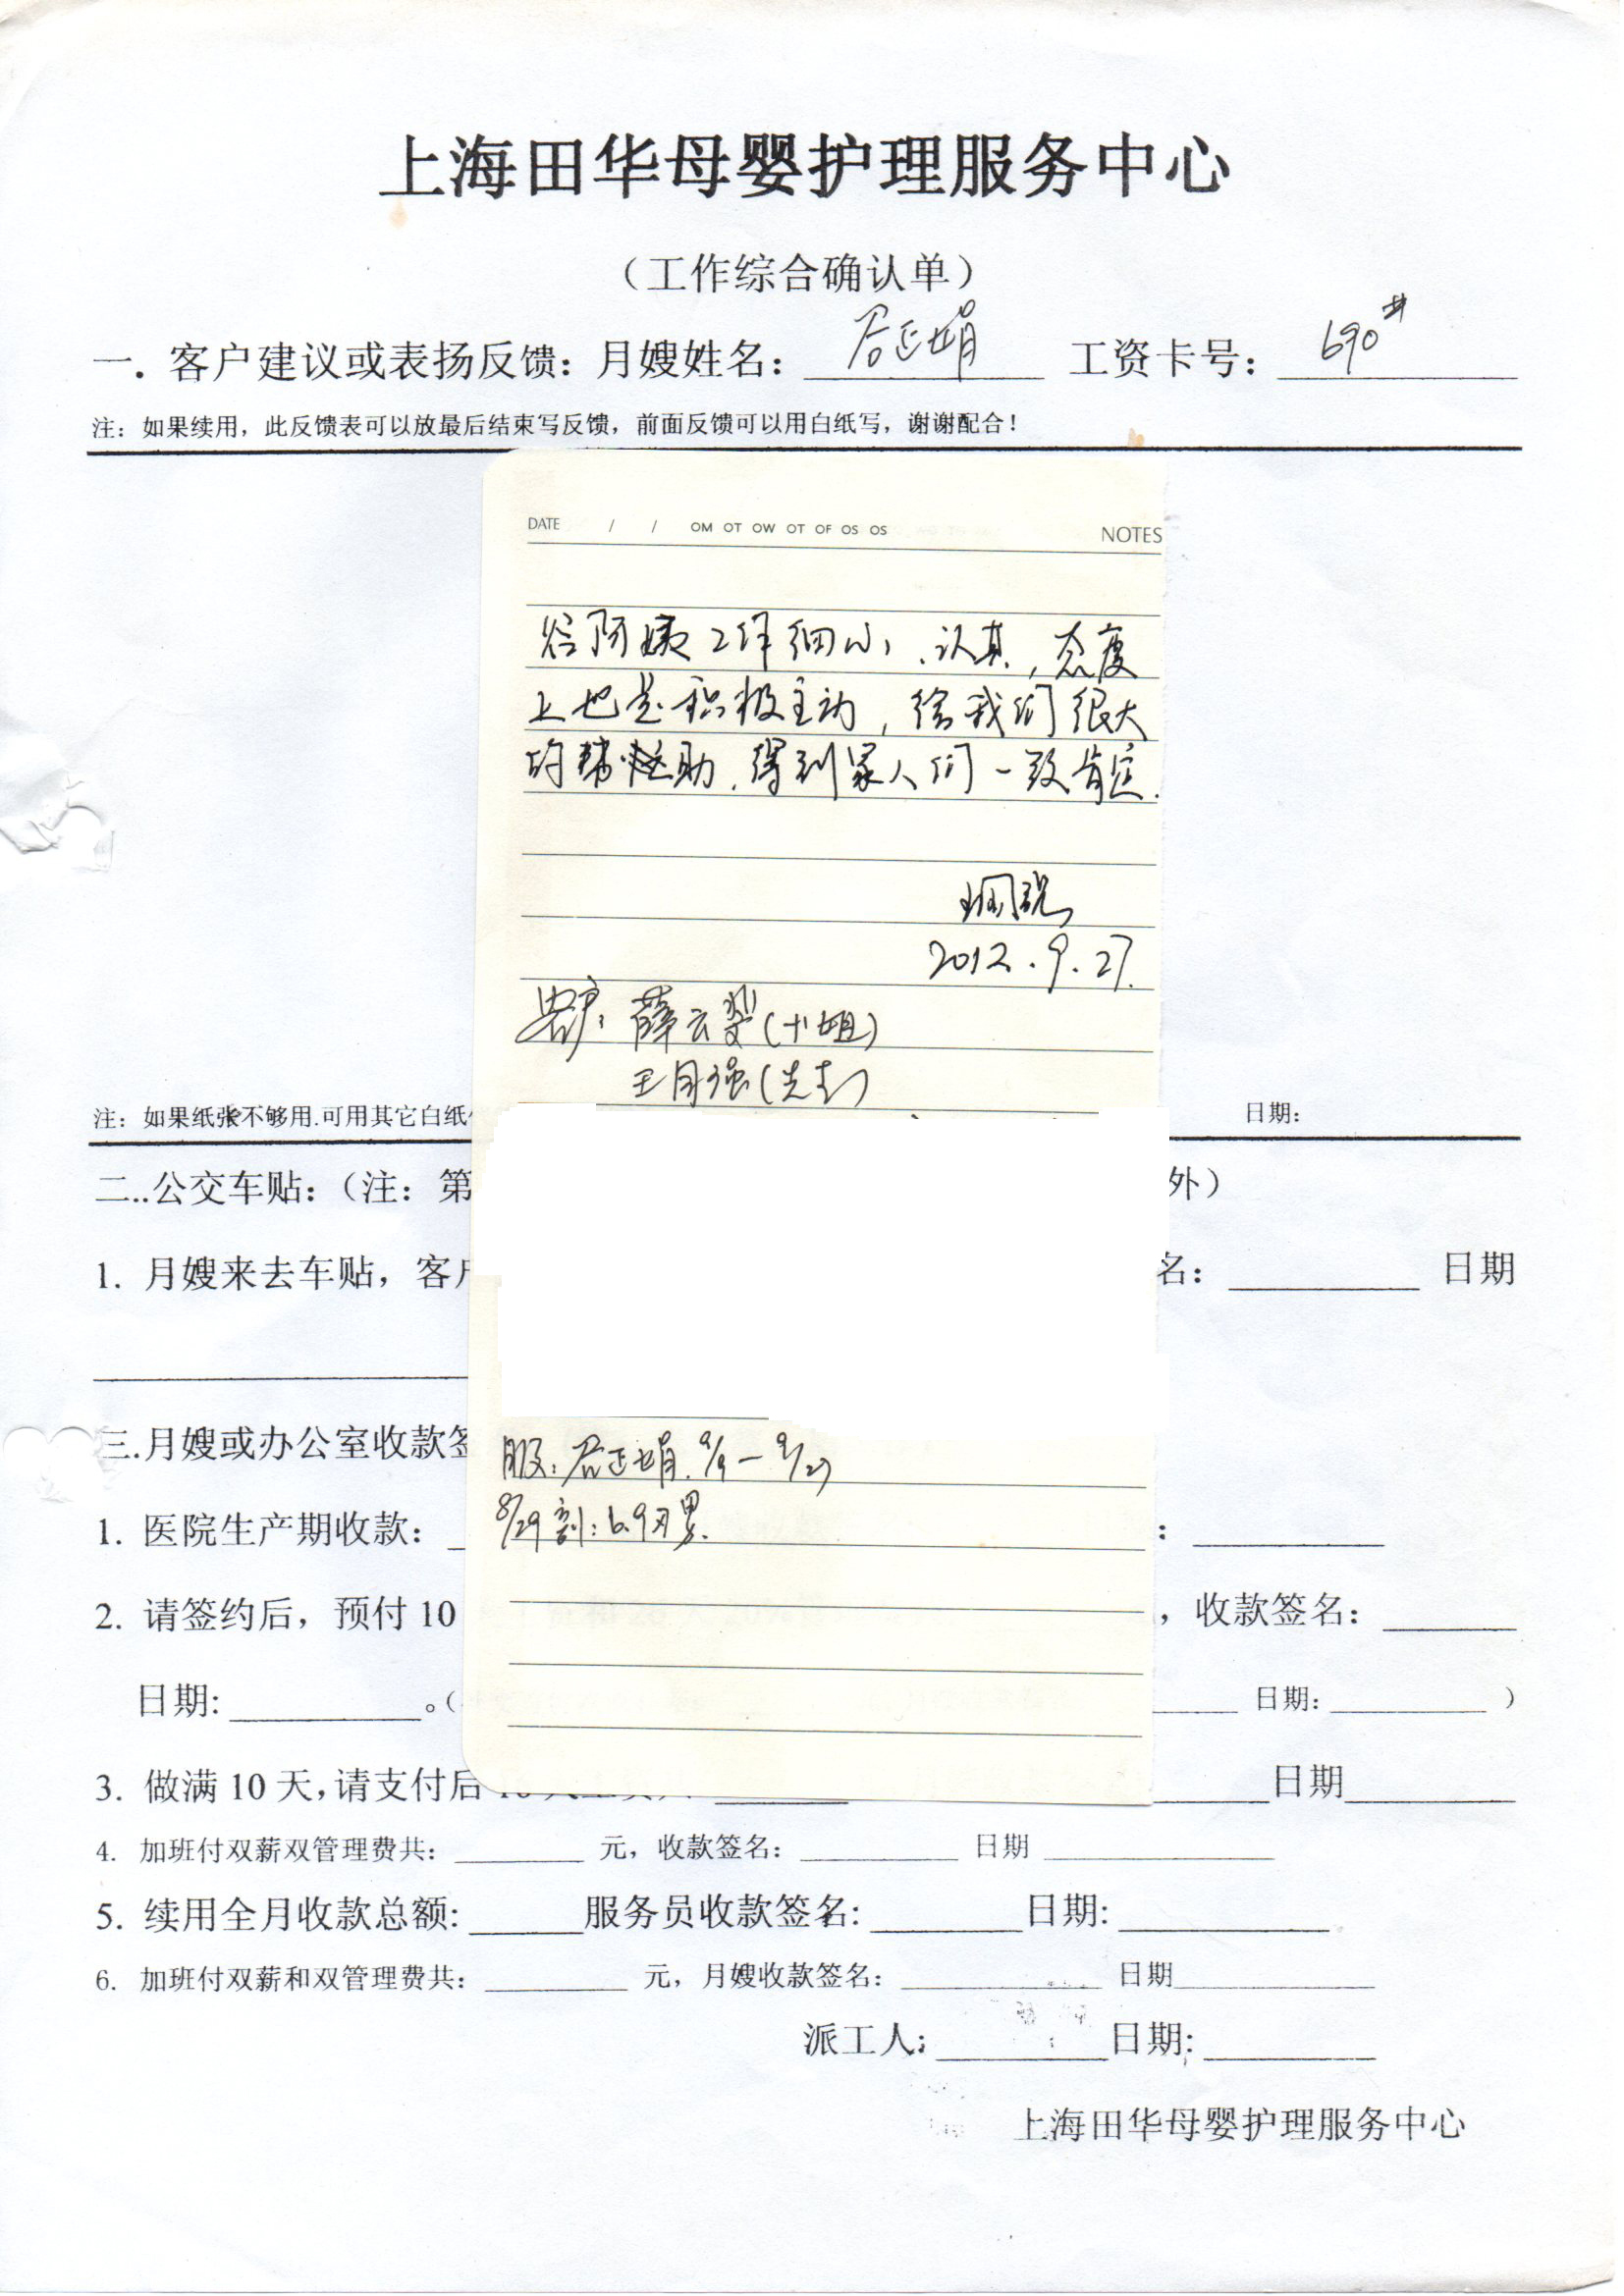 上海田华母婴护理服务中心
（工作综合确认单）
一. 客户建议或表扬反馈：月嫂姓名： 工资卡号： 690#
注：如果续用，此反馈表可以放最后结束写反馈，前面反馈可以用白纸写，谢谢配合！
DATE / / OM OT OW OT OF OS OS NOTES
谷阿姨工作细心、认真，态度
上也是积极主动，给我们很大
的帮助，得到家人们一致肯定.
2012.9.27.
客户：薛云 (小姐)
王月强(先生)
注：如果纸张不够用.可用其它白纸 日期：
二..公交车贴：（注：第 外）
1. 月嫂来去车贴，客户 名： 日期
三.月嫂或办公室收款签
服：谷正娟. 9/9—9/27
8/29剖：6.9斤男.
1. 医院生产期收款： ：
2. 请签约后，预付 10 ，收款签名：
日期: 。（ 日期: ）
3. 做满 10 天，请支付后 日期
4. 加班付双薪双管理费共： 元，收款签名： 日期
5. 续用全月收款总额: 服务员收款签名: 日期:
6. 加班付双薪和双管理费共： 元，月嫂收款签名： 日期
派工人： 日期:
上海田华母婴护理服务中心